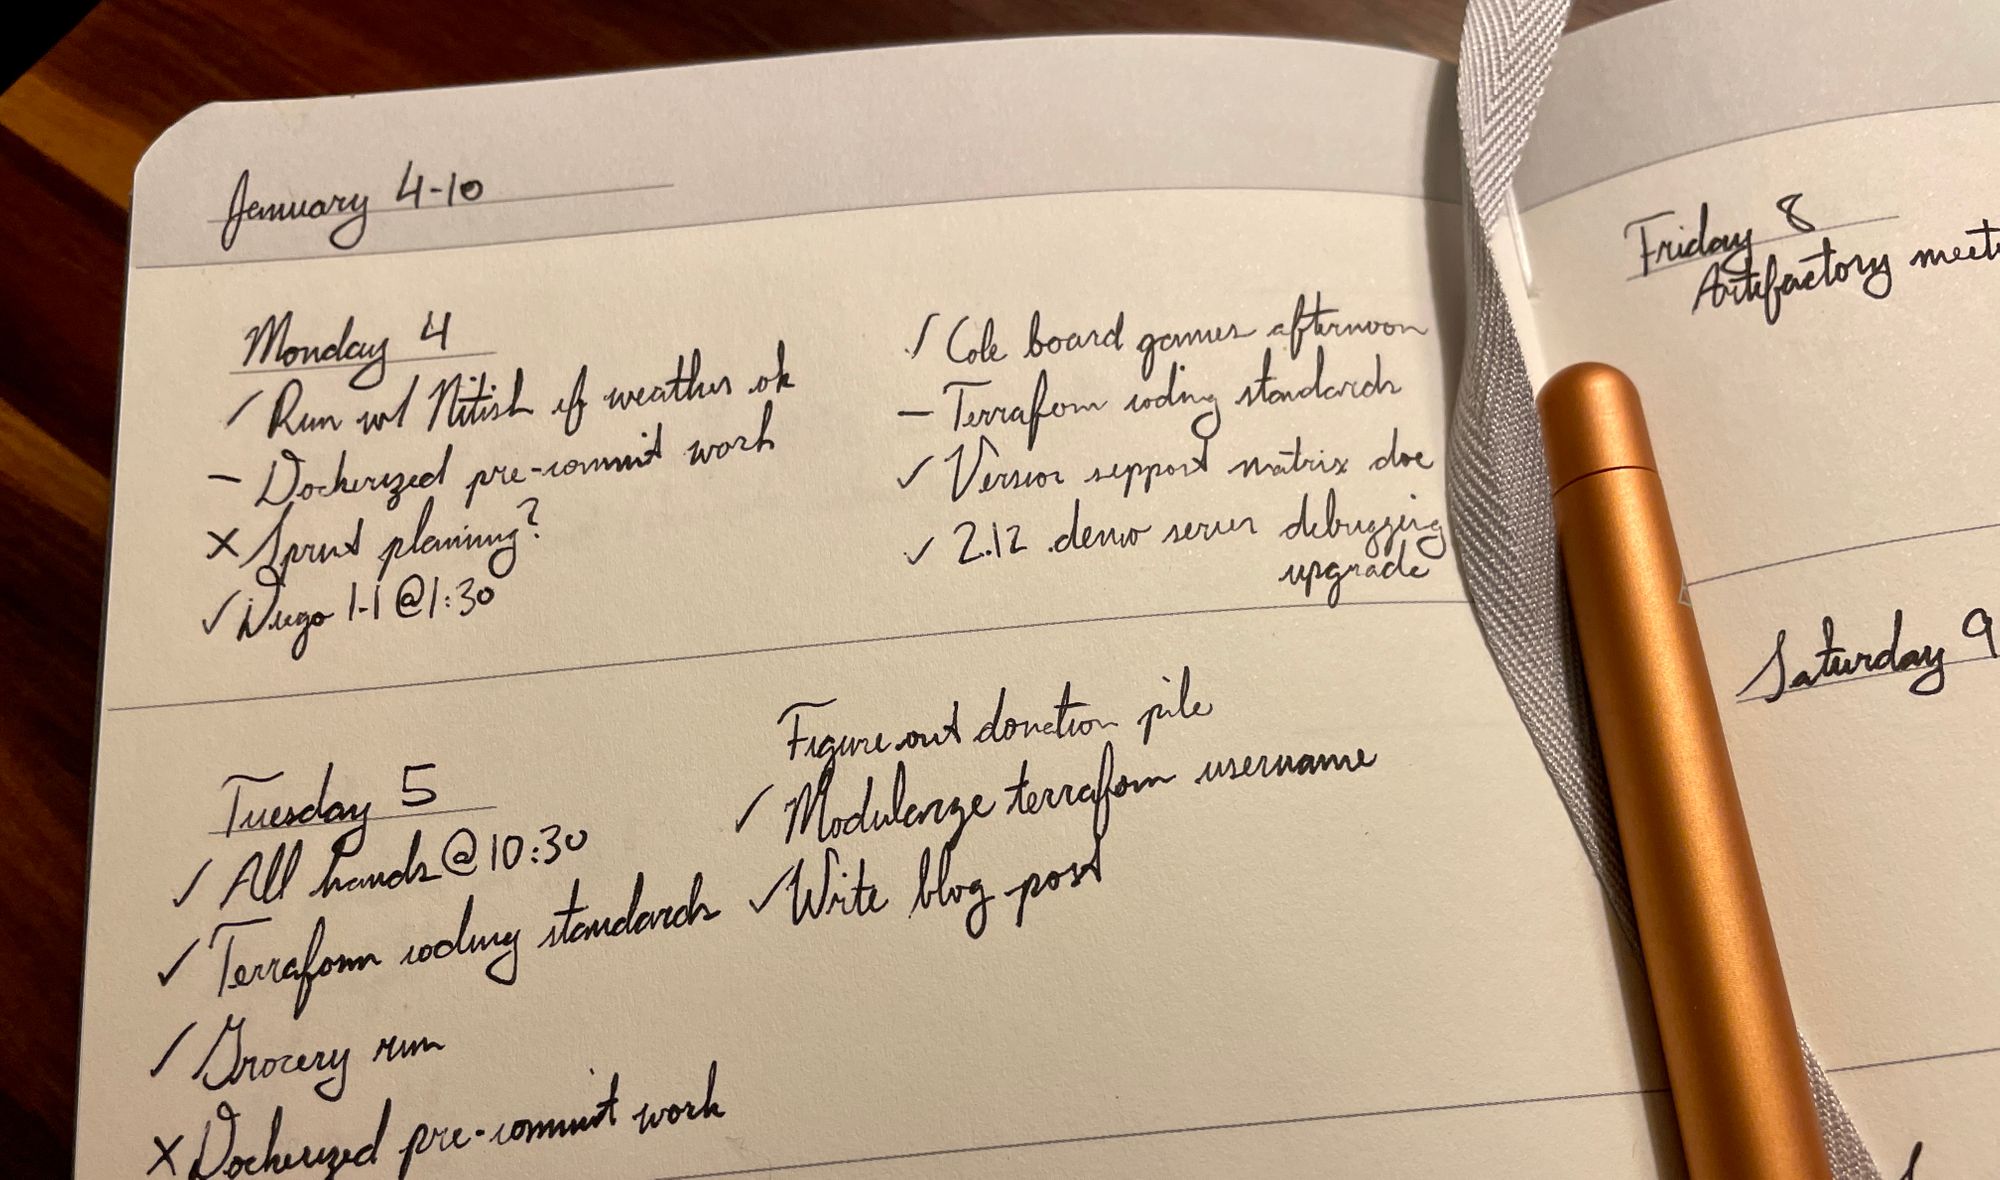 January 4-10
Monday 4
✓ Run w/ Nitish if weather ok
– Dockerized pre-commit work
× Sprint planning?
✓ Diego 1-1 @ 1:30
✓ Cole board games afternoon
– Terraform coding standards
✓ Version support matrix doc
✓ 2.12 demo server debugging
upgrade
Tuesday 5
✓ All hands @ 10:30
✓ Terraform coding standards
✓ Grocery run
× Dockerized pre-commit work
Figure out donation pile
✓ Modularize terraform username
✓ Write blog post
Friday 8
Artifactory
Saturday 9